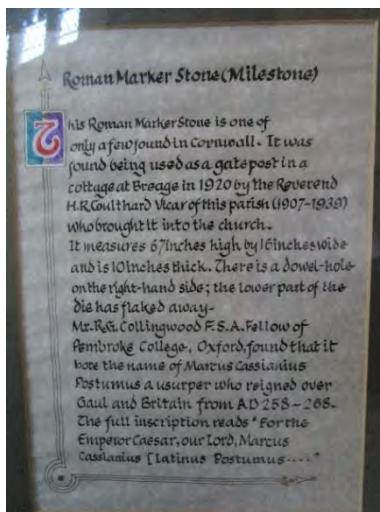 Roman Marker Stone (Milestone)
This Roman Marker Stone is one of
only a few found in Cornwall. It was
found being used as a gate post in a
cottage at Breage in 1920 by the Reverend
H.R. Coulthard Vicar of this parish (1907-1939)
who brought it into the church.
It measures 67 inches high by 16 inches wide
and is 10 inches thick. There is a dowel-hole
on the right-hand side; the lower part of the
die has flaked away-
Mr. R.G. Collingwood F.S.A. Fellow of
Pembroke College, Oxford, found that it
bore the name of Marcus Cassianius
Postumus a usurper who reigned over
Gaul and Britain from AD 258-268.
The full inscription reads "For the
Emperor Caesar, our Lord, Marcus
Cassianius [Latinus Postumus...."